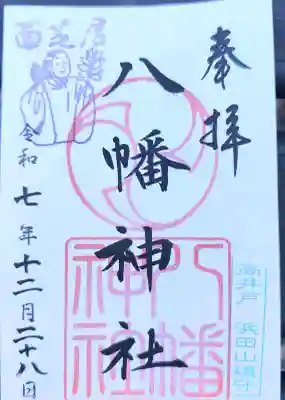 奉拝
八幡神社
令和七年十二月二十八日
八幡神社
高井戸 浜田山鎮守